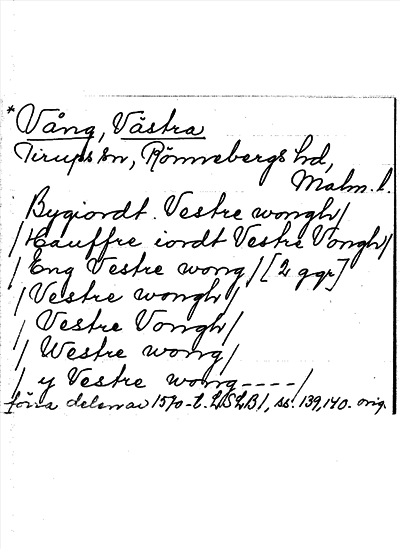 * Vång, Västra
Tirups sn, Rönnebergs hd,
Malm. l.
Bygiordt. Vestre wongh/
/ Hauffre iordt Vestre Vongh/
/ Eng Vestre wong / [2 ggr]
/ Vestre wongh/
/ Vestre Vongh/
/ Westre wong/
/ y Vestre wong ----/
förra delen av 1570-t. LSLB1, ss. 139,140. orig.